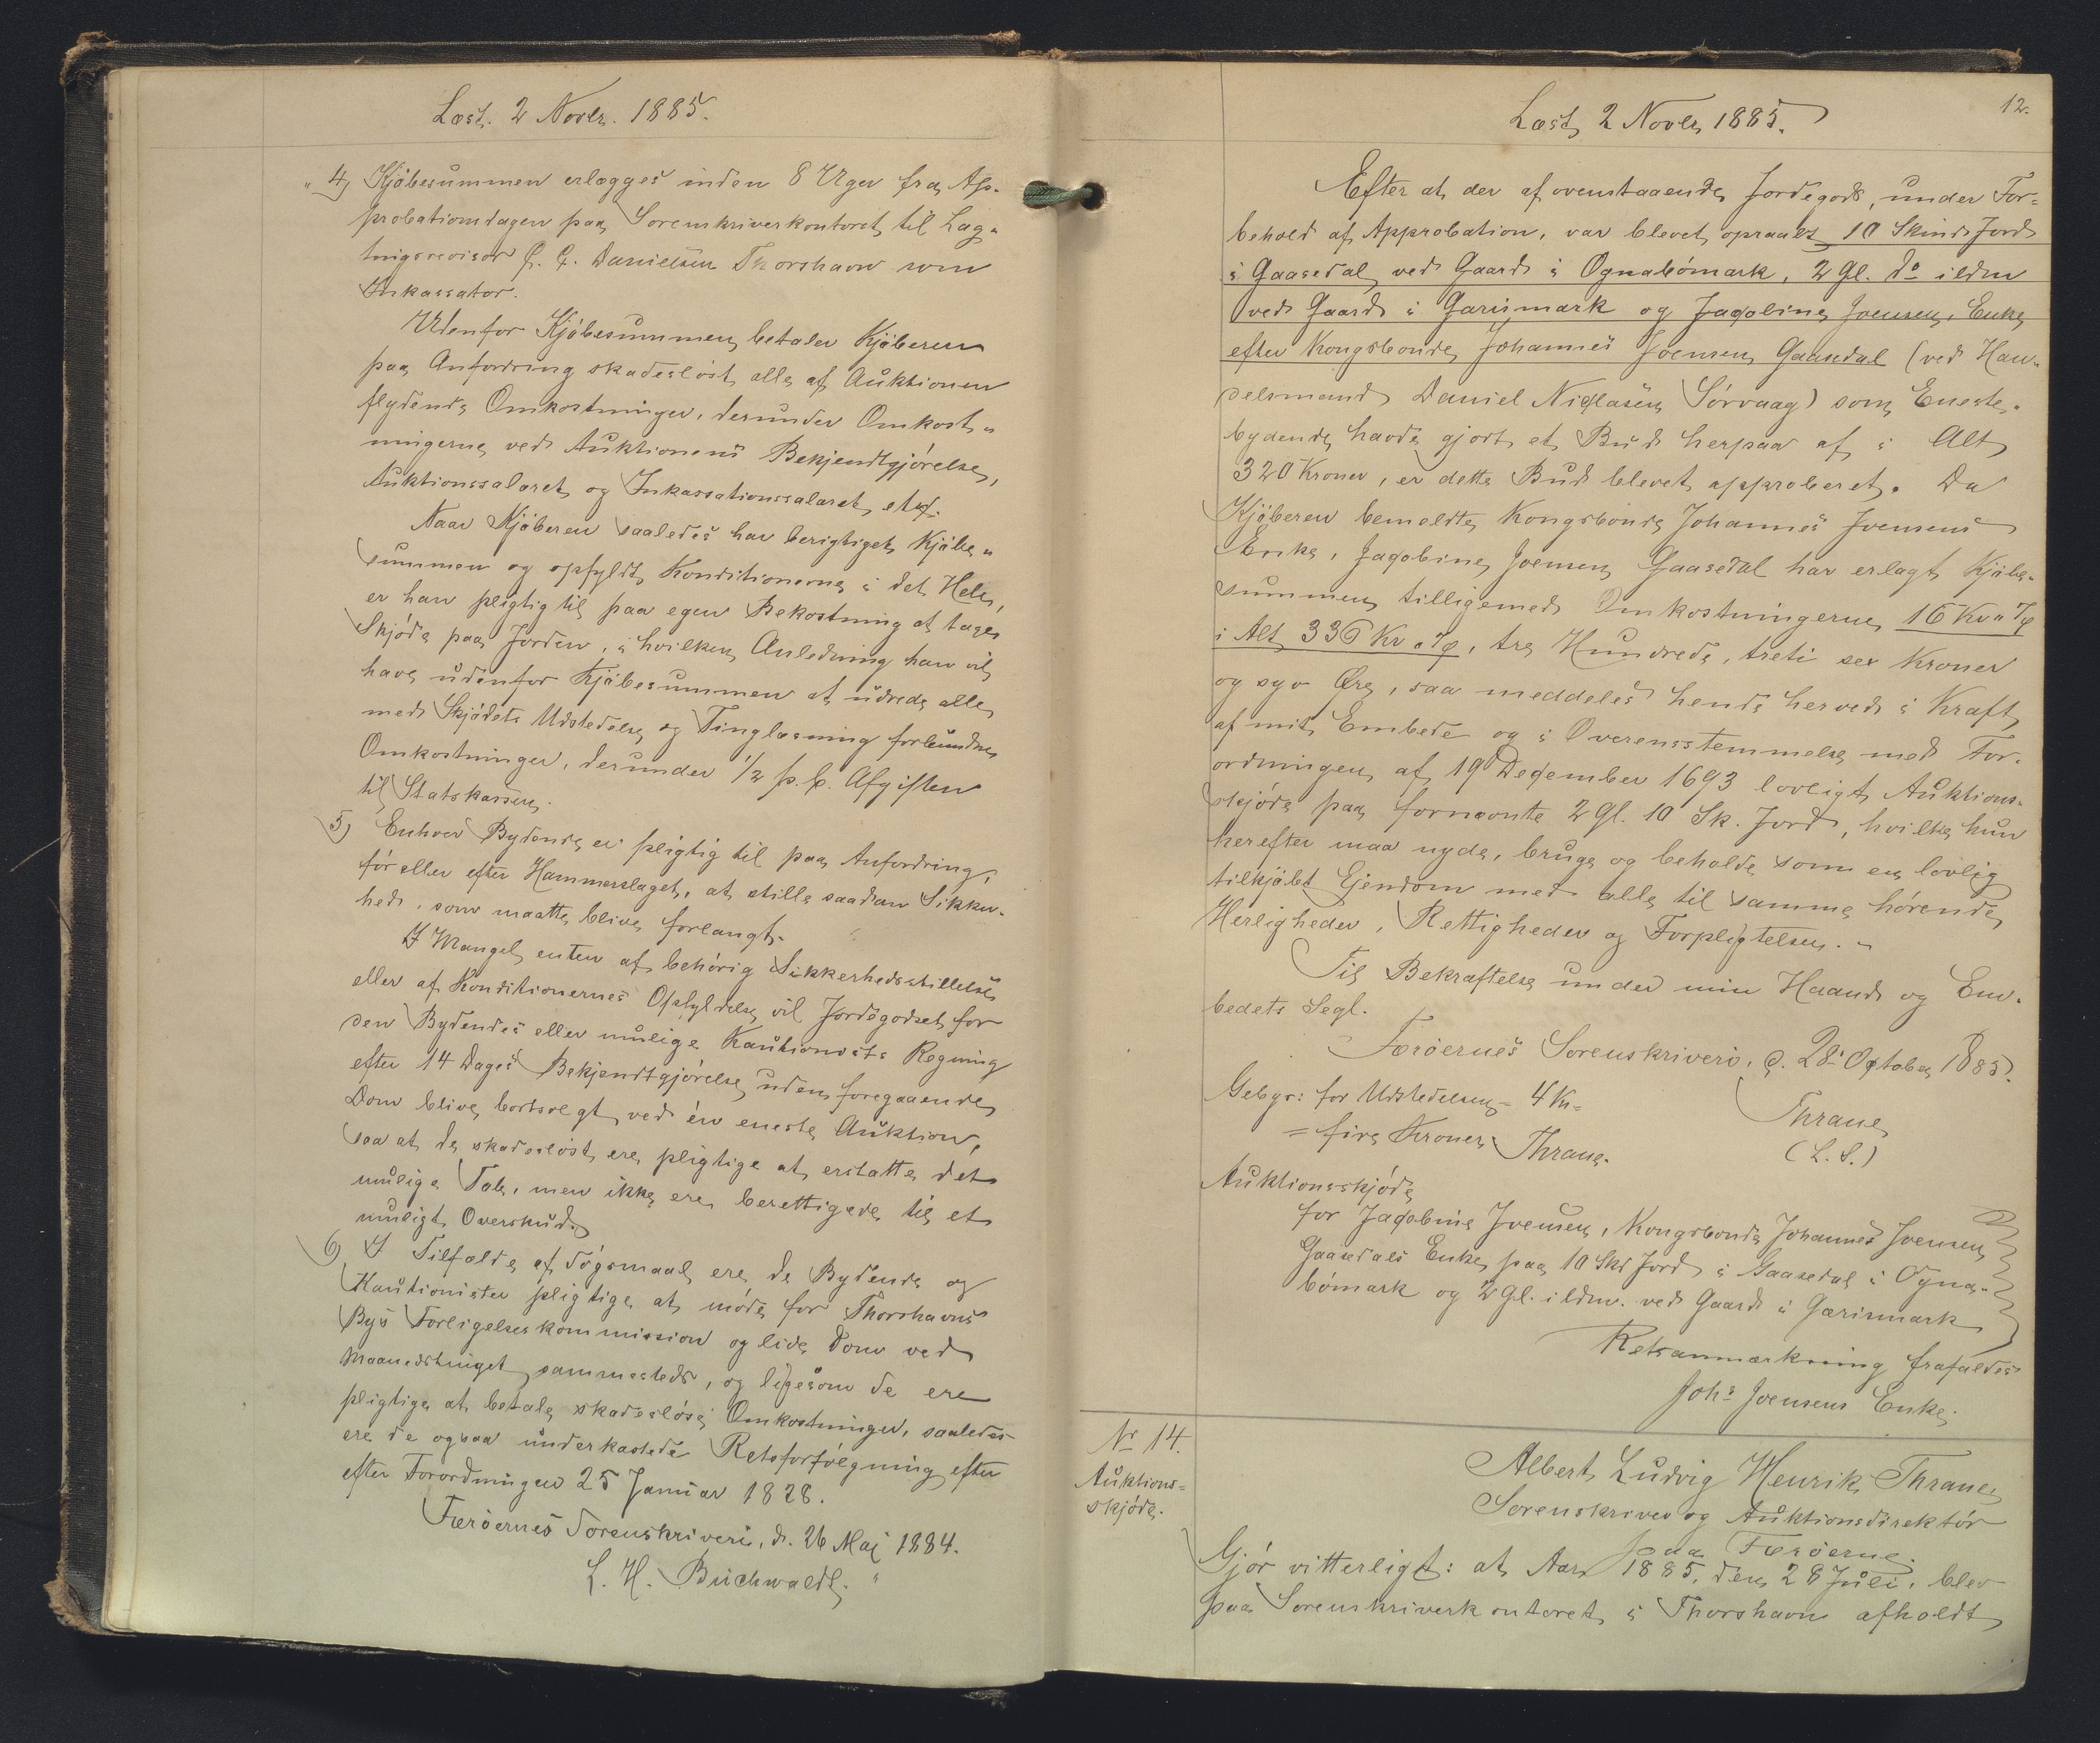 Læst. 2 Novbr. 1885.
4) Kjöbesummen erlægges inden 8 Uger fra Ap-
probationsdagen paa Sorenskriverkontoret til Lag-
tingsrevisor Danielsen Thorshavn som
Inkassator.
Udenfor Kjöbesummen betaler Kjöberen
paa Anfordring skadeslöst alle af Auktionen
flydende Omkostninger, derunder Omkost-
ningerne ved Auktionens Bekjendtgjörelse,
Auktionssalæret og Inkassationssalæret etc.
Naar Kjöberen saaledes har berigtiget Kjöbe-
summen og opfyldt Konditionerne i det Hele,
er han pligtig til paa egen Bekostning at tage
Skjöde paa Jorden, i hvilken Anledning han vil
have udenfor Kjöbesummen at udrede alle
med Skjödets Udstedelse og Tinglæsning forbundne
Omkostninger, derunder 1/2 p.C. Afgiften
til Statskassen.
5) Enhver Bydende er pligtig til paa Anfordring,
för eller efter Hammerslaget, at stille saadan Sikker-
hed, som maatte blive forlangt.
I Mangel enten af behörig Sikkerhedsstillelse
eller af Konditionernes Opfyldelse vil Jordegodset for
den Bydendes eller mulige Kautionists Regning
efter 14 Dages Bekjendtgjörelse uden foregaaende
Dom blive bortsolgt ved én eneste Auktion,
saa at de skadeslöst ere pligtige at erstatte det
mulige Tab, men ikke ere berettigede til et
muligt Overskud.
6) I Tilfælde af Sögsmaal ere de Bydende og
Kautionister pligtige at möde for Thorshavns
Bys Forligelseskommission og lide Dom ved
Maanedstinget sammesteds, og ligesom de ere
pligtige at betale skadeslöse Omkostninger, saaledes
ere de ogsaa underkastede Retsforfölgning efter
efter Forordningen 25 Januar 1828.
Færöernes Sorenskriveri, d. 26 Maj 1884.
L. H. Buchwaldt.
Læst 2 Novbr 1885.
12.
Efter at der af ovenstaaende Jordegods, under For-
behold af Approbation, var blevet opraabt 10 Skind Jord
i Gaasedal ved Gaard i Ognabömark, 2 Gl. do ildm
ved Gaard i Garismark og Jacobine Joensen, Enke
efter Kongsbonde Johannes Joensen Gaasedal (ved Han-
delsmand Daniel Niclasen Sörvaag) som Eneste-
bydende havde gjort et Bud herpaa af i Alt
320 Kroner, er dette Bud blevet approberet. Da
Kjöberen bemeldte Kongsbonde Johannes Joensens
Enke, Jacobine Joensen Gaasedal har erlagt Kjöbe-
summen tilligemed Omkostningerne 16 Kr. 7 ø
i Alt 336 Kr. 7 ø, tre Hundrede, treti sex Kroner
og syv Øre, saa meddeles hende herved i Kraft
af mit Embede og i Overensstemmelse med For-
ordningen af 19 December 1693 lovligt Auktions-
skjöde paa fornævnte 2 Gl. 10 Sk. Jord, hvilke hun
herefter maa nyde, bruge og beholde som en lovlig
tilkjöbt Ejendom med alle til samme hörende
Herligheder, Rettigheder og Forpligtelser.
Til Bekræftelse under min Haand og Em-
bedets Segl.
Færöernes Sorenskriveri, d. 28 October 1885.
Gebyr: for Udstedelsen 4 Kr.
Thrane
= fire Kroner Thrane.
(L.S.)
Auktionsskjöde
for Jacobine Joensen, Kongsbonde Johannes Joensen
Gaasedals Enke, paa 10 Skd Jord i Gaasedal i Ogna-
bömark og 2 Gl. ildm. ved Gaard i Garismark
Retsanmærkning frafaldes
Johs Joensens Enke.
No 14.
Auktions-
skjöde.
Albert Ludvig Henrik Thrane
Sorenskriver og Auktionsdirektör
paa Færöerne.
Gjör vitterligt: at Aar 1885, den 28 Juli, blev
paa Sorenskriverkontoret i Thorshavn afholdt